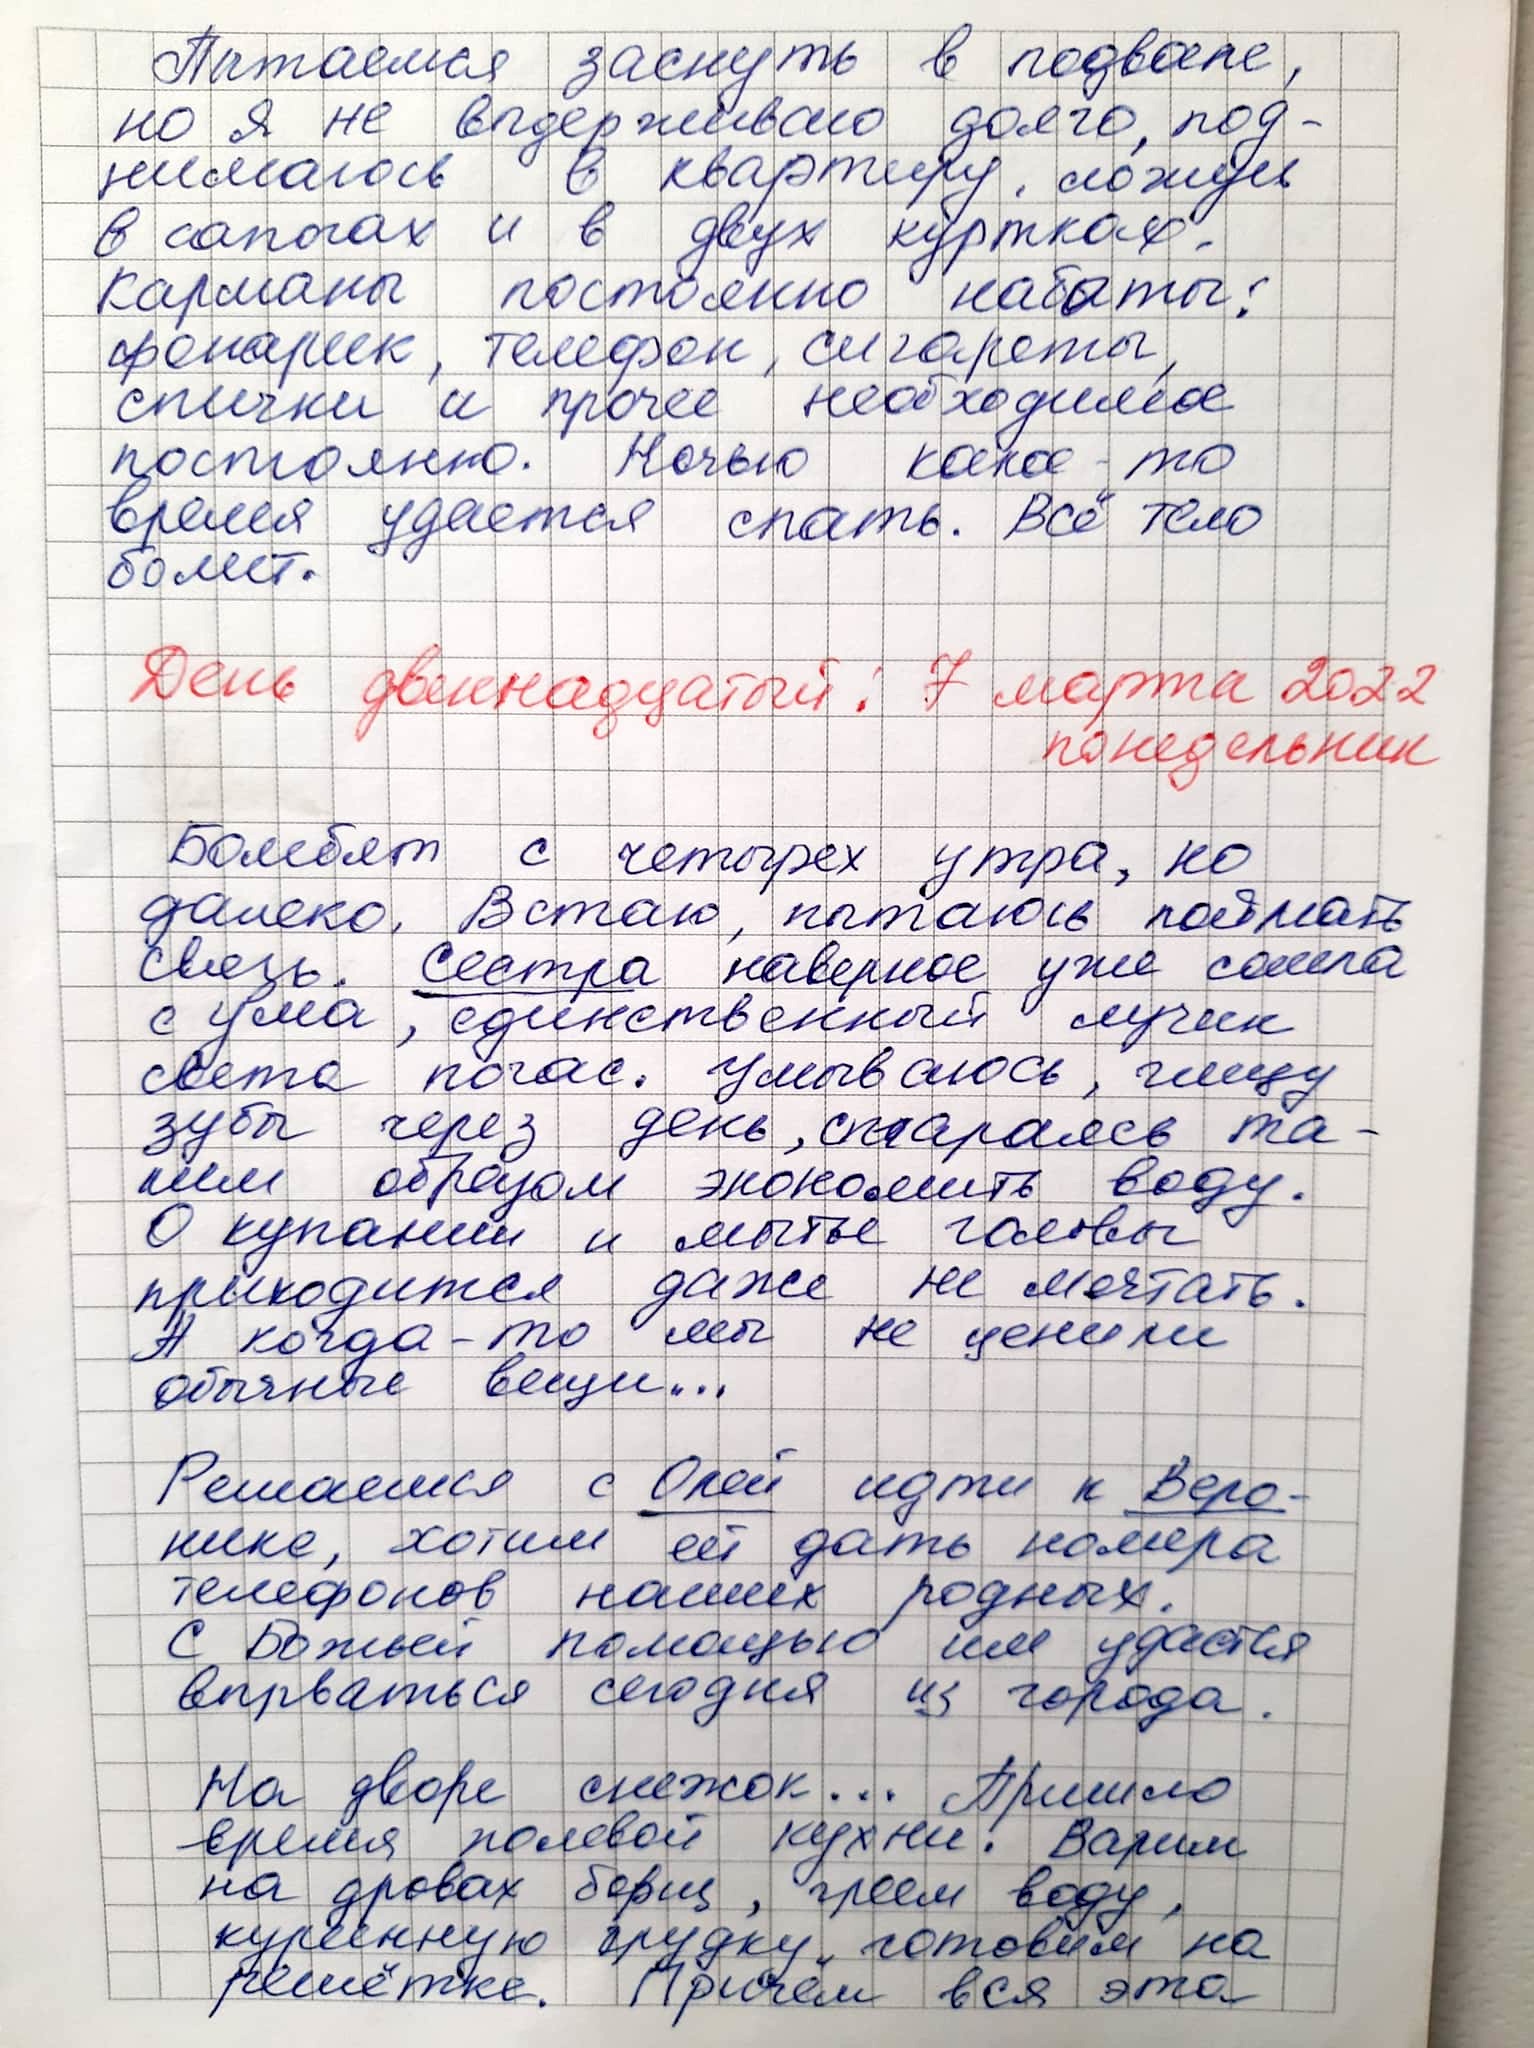 Пытаемся заснуть в подвале,
но я не выдерживаю долго, под-
нимаюсь в квартиру, ложусь
в сапогах и в двух куртках.
Карманы постоянно набиты:
фонарик, телефон, сигареты,
спички и прочее необходимое
постоянно. Ночью какое-то
время удается спать. Всё тело
болит.
День двеннадцатый: 7 марта 2022
понедельник
Бомбят с четырех утра, но
далеко. Встаю, пытаюсь поймать
связь. Сестра наверное уже сошла
с ума, единственный лучик
света погас. Умываюсь, чищу
зубы через день, стараясь та-
ким образом экономить воду.
О купании и мытье головы
приходится даже не мечтать.
А когда-то мы не ценили
обычные вещи...
Решаемся с Олей идти к Веро-
нике, хотим ей дать номера
телефонов наших родных.
С Божьей помощью им удастся
вырваться сегодня из города.
На дворе снежок... Пришло
время полевой кухни. Варим
на дровах борщ, греем воду,
куриную грудку готовим на
решётке. Причём вся эта